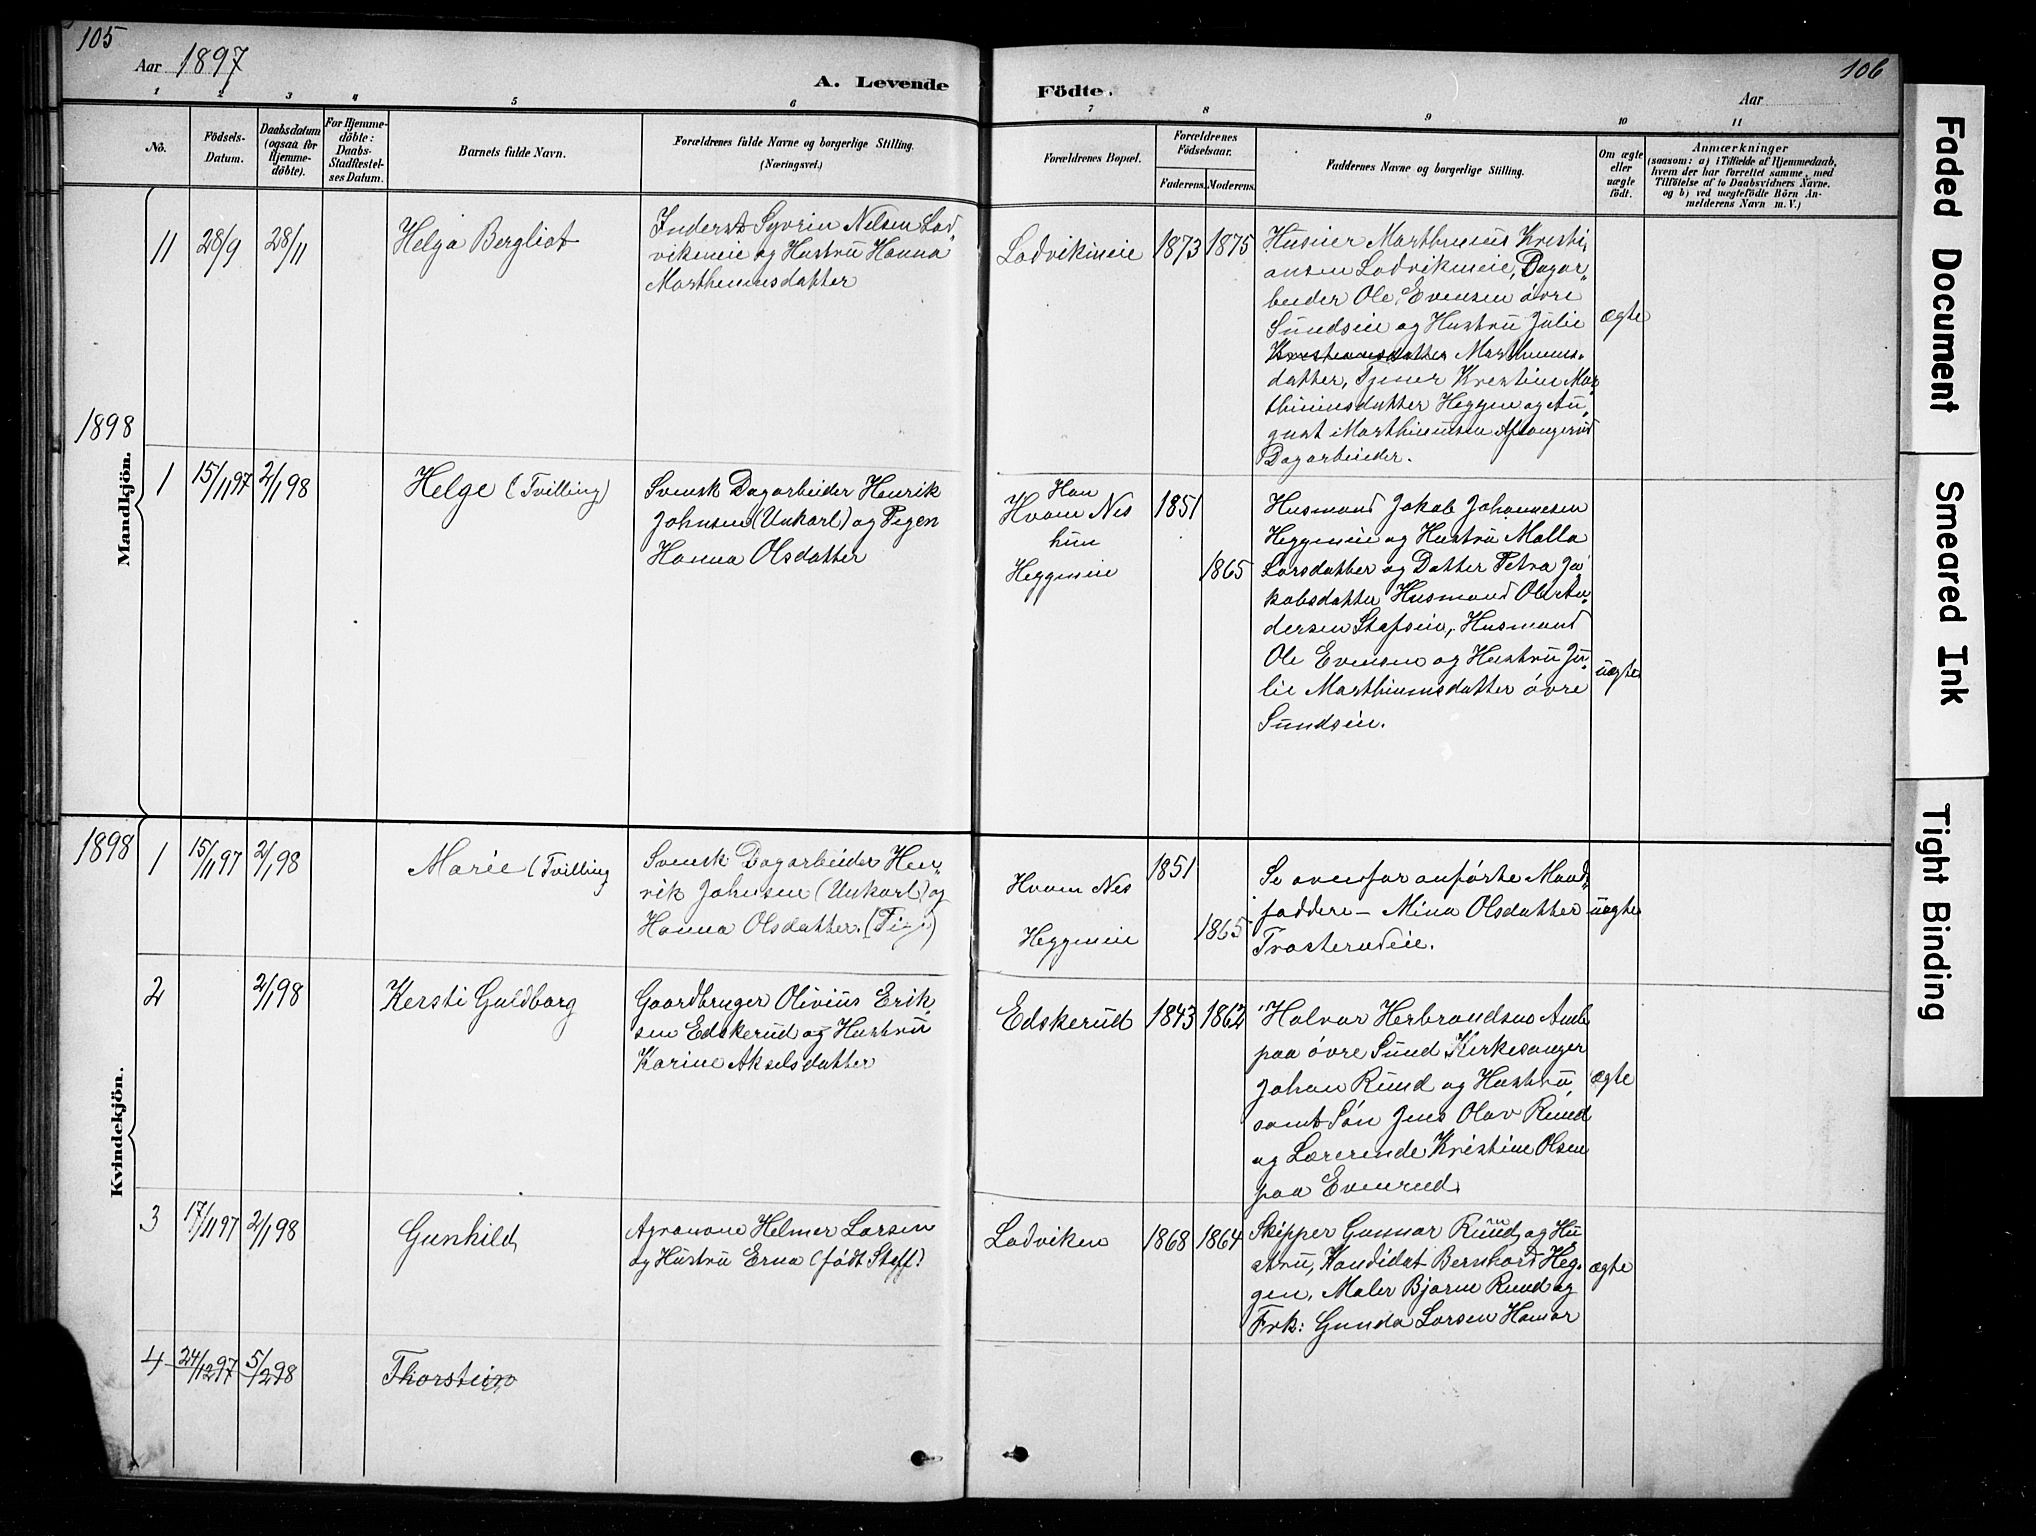 105
Aar 1897
A. Levende
Födte.
Aar
106
1 2 3 4 5 6 7 8 9 10 11
No.
Födsels-
Datum.
Daabsdatum
(ogsaa for
Hjemme-
döbte).
For Hjemme-
döbte:
Daabs-
Stadfæstel-
ses Datum.
Barnets fulde Navn.
Forældrenes fulde Navne og borgerlige Stilling.
(Næringsvei.)
Forældrenes Bopæl.
Forældrenes
Födselsaar.
Faderens. Moderens.
Faddernes Navne og borgerlige Stilling.
Om ægte
eller
uægte
födt.
Anmærkninger
(saasom: a) i Tilfælde af Hjemmedaab,
hvem der har forrettet samme, med
Tilföielse af to Daabsvidners Navne.
og b) ved uægtefödte Börn An-
melderens Navn m. V.)
11 28/9 28/11
Helga Bergliot
Inderst Syvrin Nelsen Lod-
vikeneie og Hustru Hanna
Marthinusdatter
Lodvikeneie 1873 1875
Husmer Marthinus Kristi-
ansen Lodvikeneie, Dagar-
beider Ole Evensen øvre
Sundseie og Hustru Julie
Kristiansdatter Marthinus-
datter, Tjener Kristine Mar
thinusdatter Heggen og Au-
gust Marthinusen
Dagarbeider.
ægte
1898
Mandkjön.
1 15/11 97 2/1 98
Helge (Tvilling)
Svensk Dagarbeider Henrik
Johnsen (Unkarl) og Pigen
Hanna Olsdatter
Han
Hvam Nes
hun
Heggeneie
1851
1865
Husmand Jakob Johannesen
Heggeneie og Hustru Malla
Larsdatter og Datter Petra Ja
kobsdatter Husmand Ole An-
dersen Stafseie, Husmand
Ole Evensen og Hustru Ju-
lie Marthinusdatter øvre
Sundseie.
uægte
1898
Kvindekjön.
1 15/11 97 2/1 98
Marie (Tvilling
Svensk Dagarbeider Hen-
rik Johnsen (Unkarl) og
Hanna Olsdatter. (Pige)
Hvam Nes
Heggeneie
1851
1865
Se ovenfor anførte Mand-
faddere - Mina Olsdatter
Trosterudeie.
uægte
2 2/1 98
Kersti Guldborg
Gaardbruger Olivius Erik-
sen Edskerud og Hustru
Karine Akselsdatter
Edskerud 1843 1862
Halvor Herbrandsen
paa øvre Sund Kirkesanger
Johan Ruud og Hustru
samt Søn Jens Olav Ruud
og Lærerinde Kristine Olsen
paa Evenrud.
ægte
3 17/11 97 2/1 98
Gunhild
Agronome Helmer Larsen
og Hustru Erna (født Staff)
Lodviken 1868 1864
Skipper Gunnar Ruud og Hu
stru, Kandidat Bernhard Heg-
gen, Maler Bjarne Ruud og
Frk: Gunda Larsen Hamar
ægte
4 24/12 97 5/2 98
Thorstein
Faded Document
Smeared Ink
Tight Binding